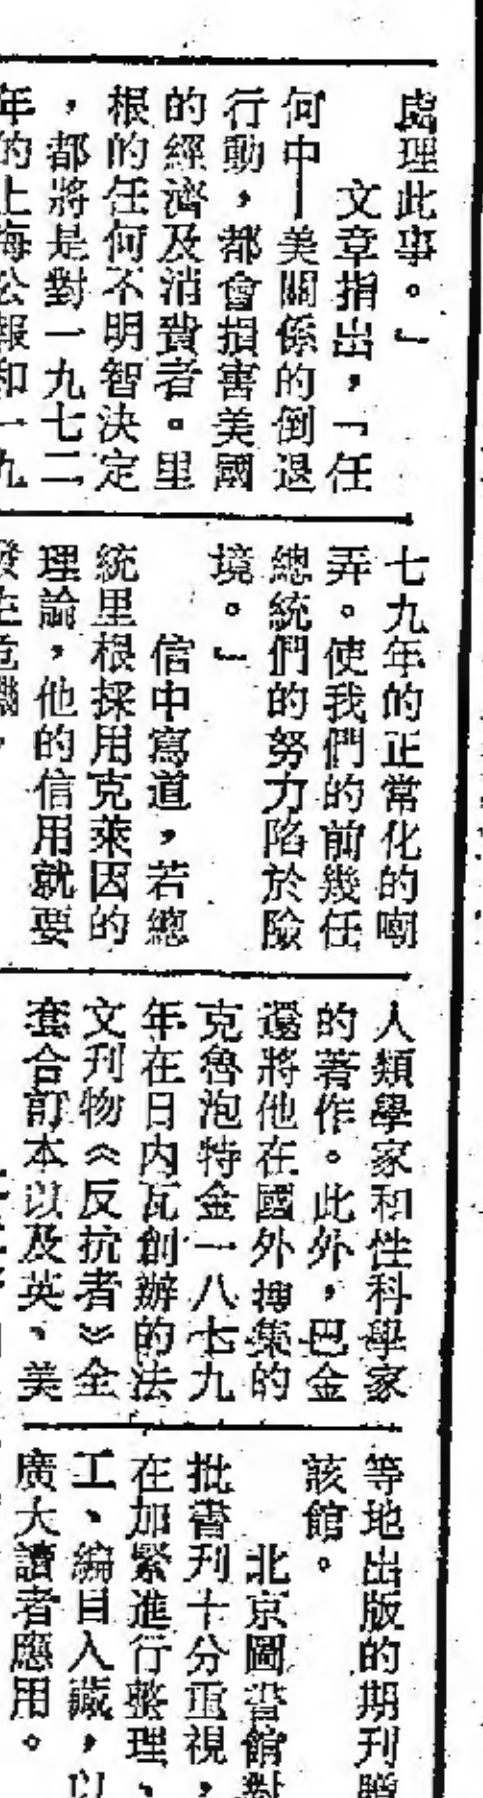 處理此事。」
文章指出，「任
何中—美關係的倒退
行動，都會損害美國
的經濟及消費者。里
根的任何不明智決定
，都將是對一九七二
年的上海公報和一九
七九年的正常化的嘲
弄。使我們的前幾任
總統們的努力陷於險
境。」
信中寫道，若總
統里根採用克萊因的
理論，他的信用就要
發生危機，
人類學家和性科學家
的著作。此外，巴金
還將他在國外搜集的
克魯泡特金一八七九
年在日內瓦創辦的法
文刊物《反抗者》全
套合訂本以及英、美
等地出版的期刊贈
該館。
北京圖書館對
批書刊十分重視，
在加緊進行整理、
工、編目入藏，以
廣大讀者應用。